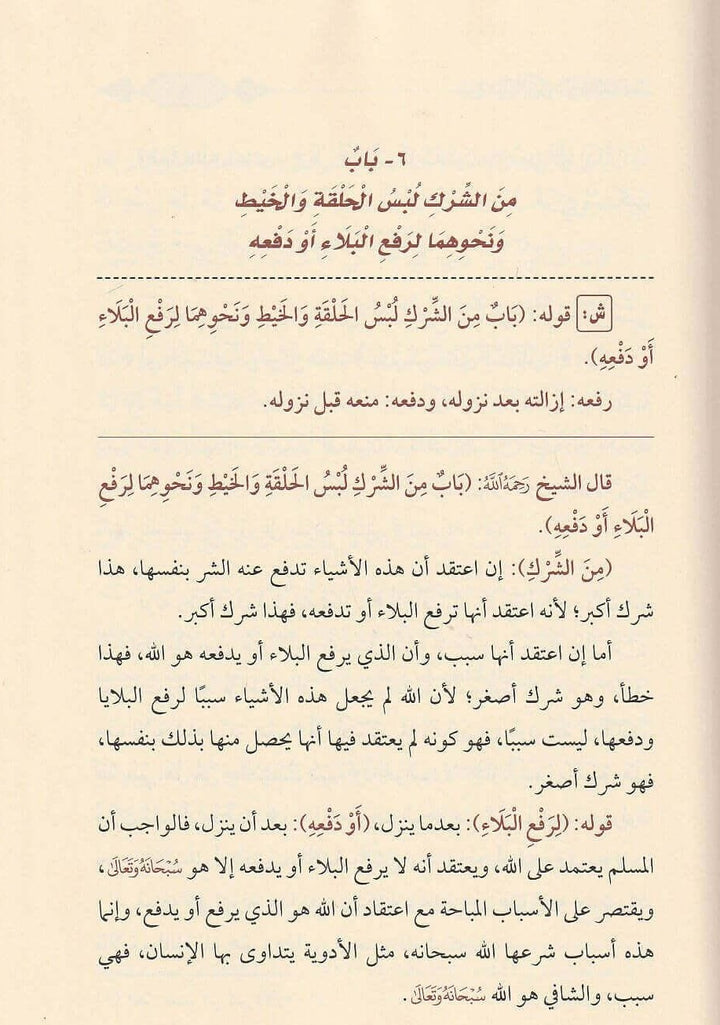 ٦- بَابٌ
مِنَ الشِّرْكِ لُبْسُ الْحَلْقَةِ وَالْخَيْطِ
وَنَحْوِهِمَا لِرَفْعِ الْبَلَاءِ أَوْ دَفْعِهِ
ش: قوله: (بَابٌ مِنَ الشِّرْكِ لُبْسُ الحَلْقَةِ وَالخَيْطِ وَنَحْوِهِمَا لِرَفْعِ الْبَلَاءِ
أَوْ دَفْعِهِ).
رفعه: إزالته بعد نزوله، ودفعه: منعه قبل نزوله.
قال الشيخ رَحِمَهُ اللَّهُ: (بَابٌ مِنَ الشِّرْكِ لُبْسُ الحَلْقَةِ وَالخَيْطِ وَنَحْوِهِمَا لِرَفْعِ
الْبَلَاءِ أَوْ دَفْعِهِ).
(مِنَ الشِّرْكِ): إن اعتقد أن هذه الأشياء تدفع عنه الشر بنفسها، هذا
شرك أكبر؛ لأنه اعتقد أنها ترفع البلاء أو تدفعه، فهذا شرك أكبر.
أما إن اعتقد أنها سبب، وأن الذي يرفع البلاء أو يدفعه هو الله، فهذا
خطأ، وهو شرك أصغر؛ لأن الله لم يجعل هذه الأشياء سببًا لرفع البلايا
ودفعها، ليست سببًا، فهو كونه لم يعتقد فيها أنها يحصل منها بذلك بنفسها،
فهو شرك أصغر.
قوله: (لِرَفْعِ الْبَلَاءِ): بعدما ينزل، (أَوْ دَفْعِهِ): بعد أن ينزل، فالواجب أن
المسلم يعتمد على الله، ويعتقد أنه لا يرفع البلاء أو يدفعه إلا هو سُبْحَانَهُ وَتَعَالَى،
ويقتصر على الأسباب المباحة مع اعتقاد أن الله هو الذي يرفع أو يدفع، وإنما
هذه أسباب شرعها الله سبحانه، مثل الأدوية يتداوى بها الإنسان، فهي
سبب، والشافي هو الله سُبْحَانَهُ وَتَعَالَى.